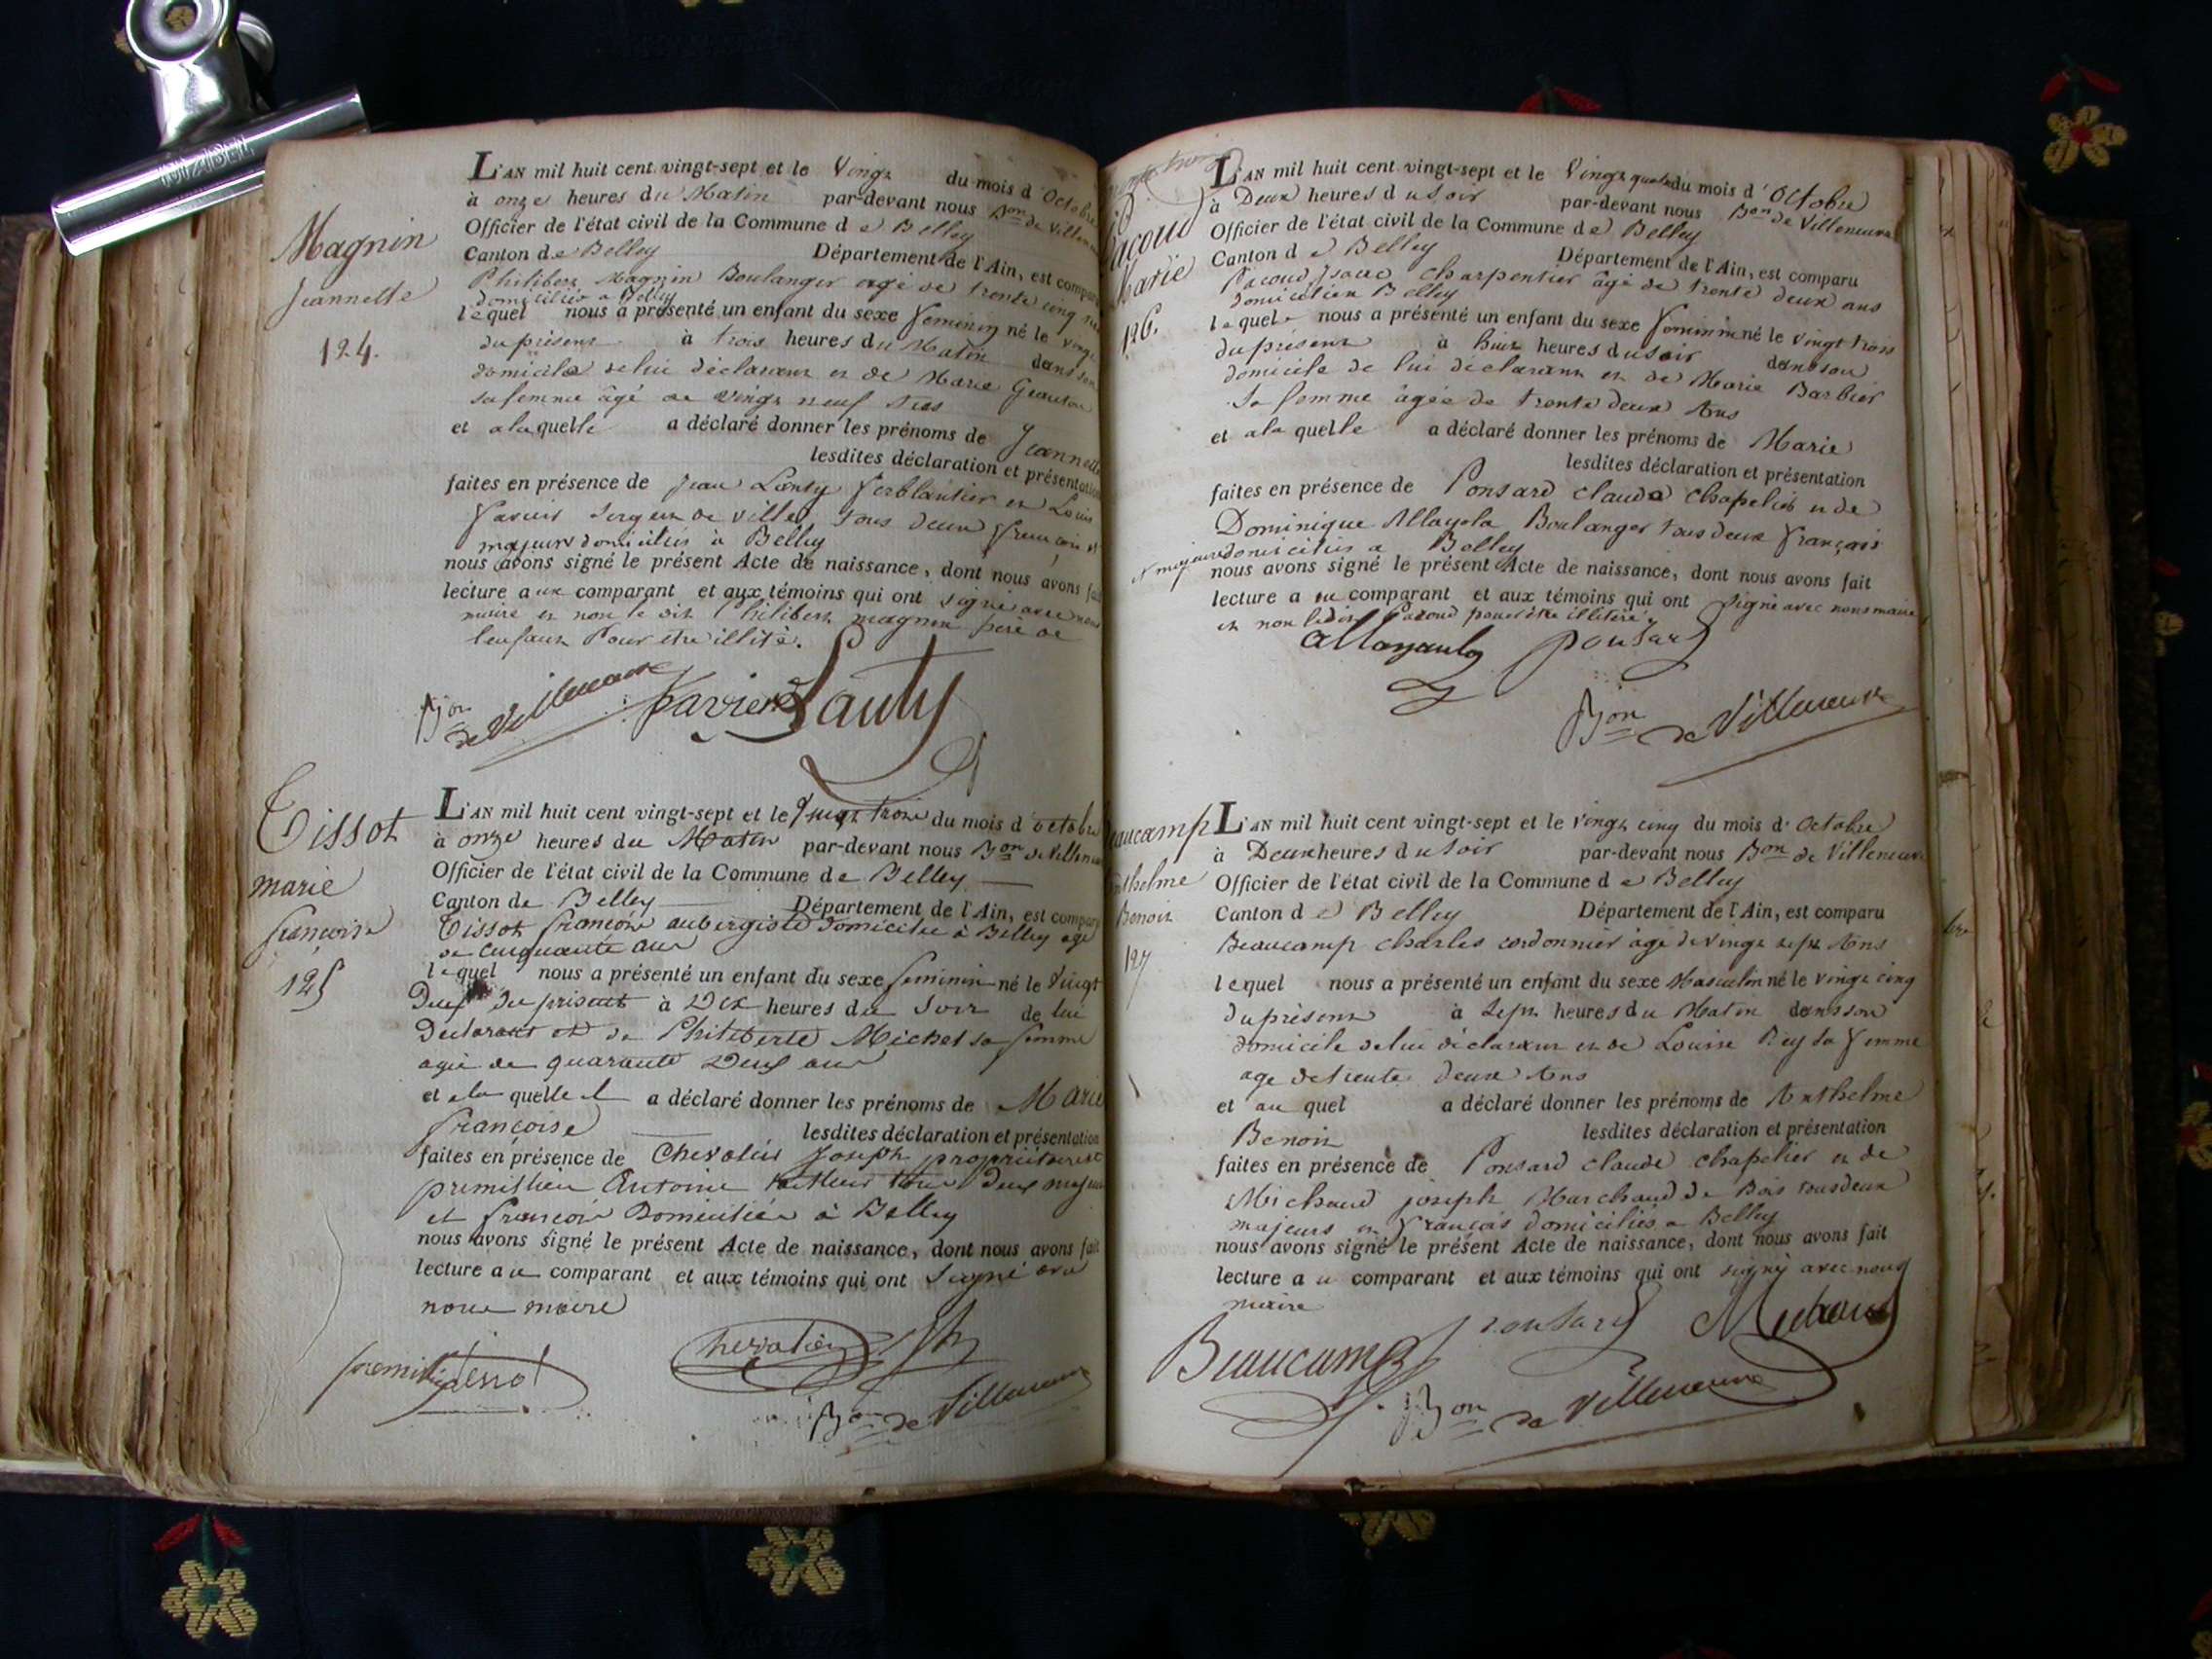 Magnin
Jeannette
124.
L'AN mil huit cent vingt-sept et le Vingt du mois d'Octobre
à onze heures du Matin par-devant nous Bon de Villeneuve
Officier de l'état civil de la Commune de Belley
Canton de Belley Département de l'Ain, est comparu
Philibert Magnin Boulanger agé de trente cinq
domicilié a Belley
lequel nous a présenté un enfant du sexe feminin né le vingt
du présent à trois heures du Matin dans son
domicile de lui déclarant et de Marie
sa femme âgé de vingt neuf
et a laquelle a déclaré donner les prénoms de Jeannette
lesdites déclaration et présentation
faites en présence de Jean Lanty ferblantier et Louis
sergent de ville tous deux français et
majeurs domiciliés à Belley
nous avons signé le présent Acte de naissance, dont nous avons fait
lecture au comparant et aux témoins qui ont signé avec nous
maire et non le dit Philibert magnin père de
lenfant Pour etre illité.
Bon de Villeneuve
Tissot
marie
françoise
125
L'AN mil huit cent vingt-sept et le Vingt trois du mois d'octobre
à onze heures du Matin par-devant nous Bon de Villeneuve
Officier de l'état civil de la Commune de Belley
Canton de Belley Département de l'Ain, est comparu
Tissot françois aubergiste domicilié à Belley agé
de cinquante ans
lequel nous a présenté un enfant du sexe feminin né le Vingt
Deux du présent à Dix heures du Soir de lui
Declarant et de Philiberte Michel sa femme
agée de quarante Deux ans
et a la quelle il a déclaré donner les prénoms de Marie
françoise lesdites déclaration et présentation
faites en présence de Chevalier Joseph propriétaire et
premillieu Antoine tous Deux majeurs
et françois Domiciliés à Belley
nous avons signé le présent Acte de naissance, dont nous avons fait
lecture au comparant et aux témoins qui ont signé avec
nous maire
Chevalier
Bon de Villeneuve
Pacoud
Marie
126.
L'AN mil huit cent vingt-sept et le Vingt quatre du mois d'Octobre
à Deux heures du soir par-devant nous Bon de Villeneuve
Officier de l'état civil de la Commune de Belley
Canton de Belley Département de l'Ain, est comparu
Pacoud Isaac Charpentier âgé de trente deux ans
domicilié a Belley
lequel nous a présenté un enfant du sexe feminin né le vingt trois
du présent à huit heures du soir dans son
domicile de lui déclarant et de Marie Barbier
Sa femme âgée de trente deux Ans
et a la quelle a déclaré donner les prénoms de Marie
lesdites déclaration et présentation
faites en présence de Ponsard claude chapelier et de
Dominique Allayola Boulanger tous deux français
et majeurs domiciliés a Belley
nous avons signé le présent Acte de naissance, dont nous avons fait
lecture au comparant et aux témoins qui ont signé avec nous maire
et non ledit Pacoud pour être illitéré.
ponsard
Bon de Villeneuve
Beaucamp
Anthelme
Benoit
127
L'AN mil huit cent vingt-sept et le vingt cinq du mois d'Octobre
à Deux heures du soir par-devant nous Bon de Villeneuve
Officier de l'état civil de la Commune de Belley
Canton de Belley Département de l'Ain, est comparu
Beaucamp charles cordonnier âgé de vingt sept Ans
lequel nous a présenté un enfant du sexe Masculin né le vingt cinq
du présent à sept heures du Matin dans son
domicile de lui déclarant et de Louise Pey sa femme
age de trente deux Ans
et au quel a déclaré donner les prénoms de Anthelme
Benoit lesdites déclaration et présentation
faites en présence de Ponsard claude chapelier et de
Michaud joseph Marchand de Bois tous deux
majeurs et français domiciliés a Belley
nous avons signé le présent Acte de naissance, dont nous avons fait
lecture au comparant et aux témoins qui ont signé avec nous
maire
Beaucamp ponsard Michaud
Bon de Villeneuve